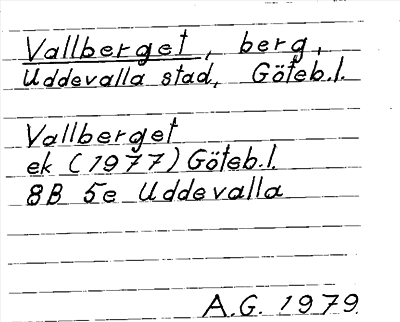 Vallberget, berg,
Uddevalla stad, Göteb.l.
Vallberget
ek (1977) Göteb.l.
8B 5e Uddevalla
A.G. 1979.